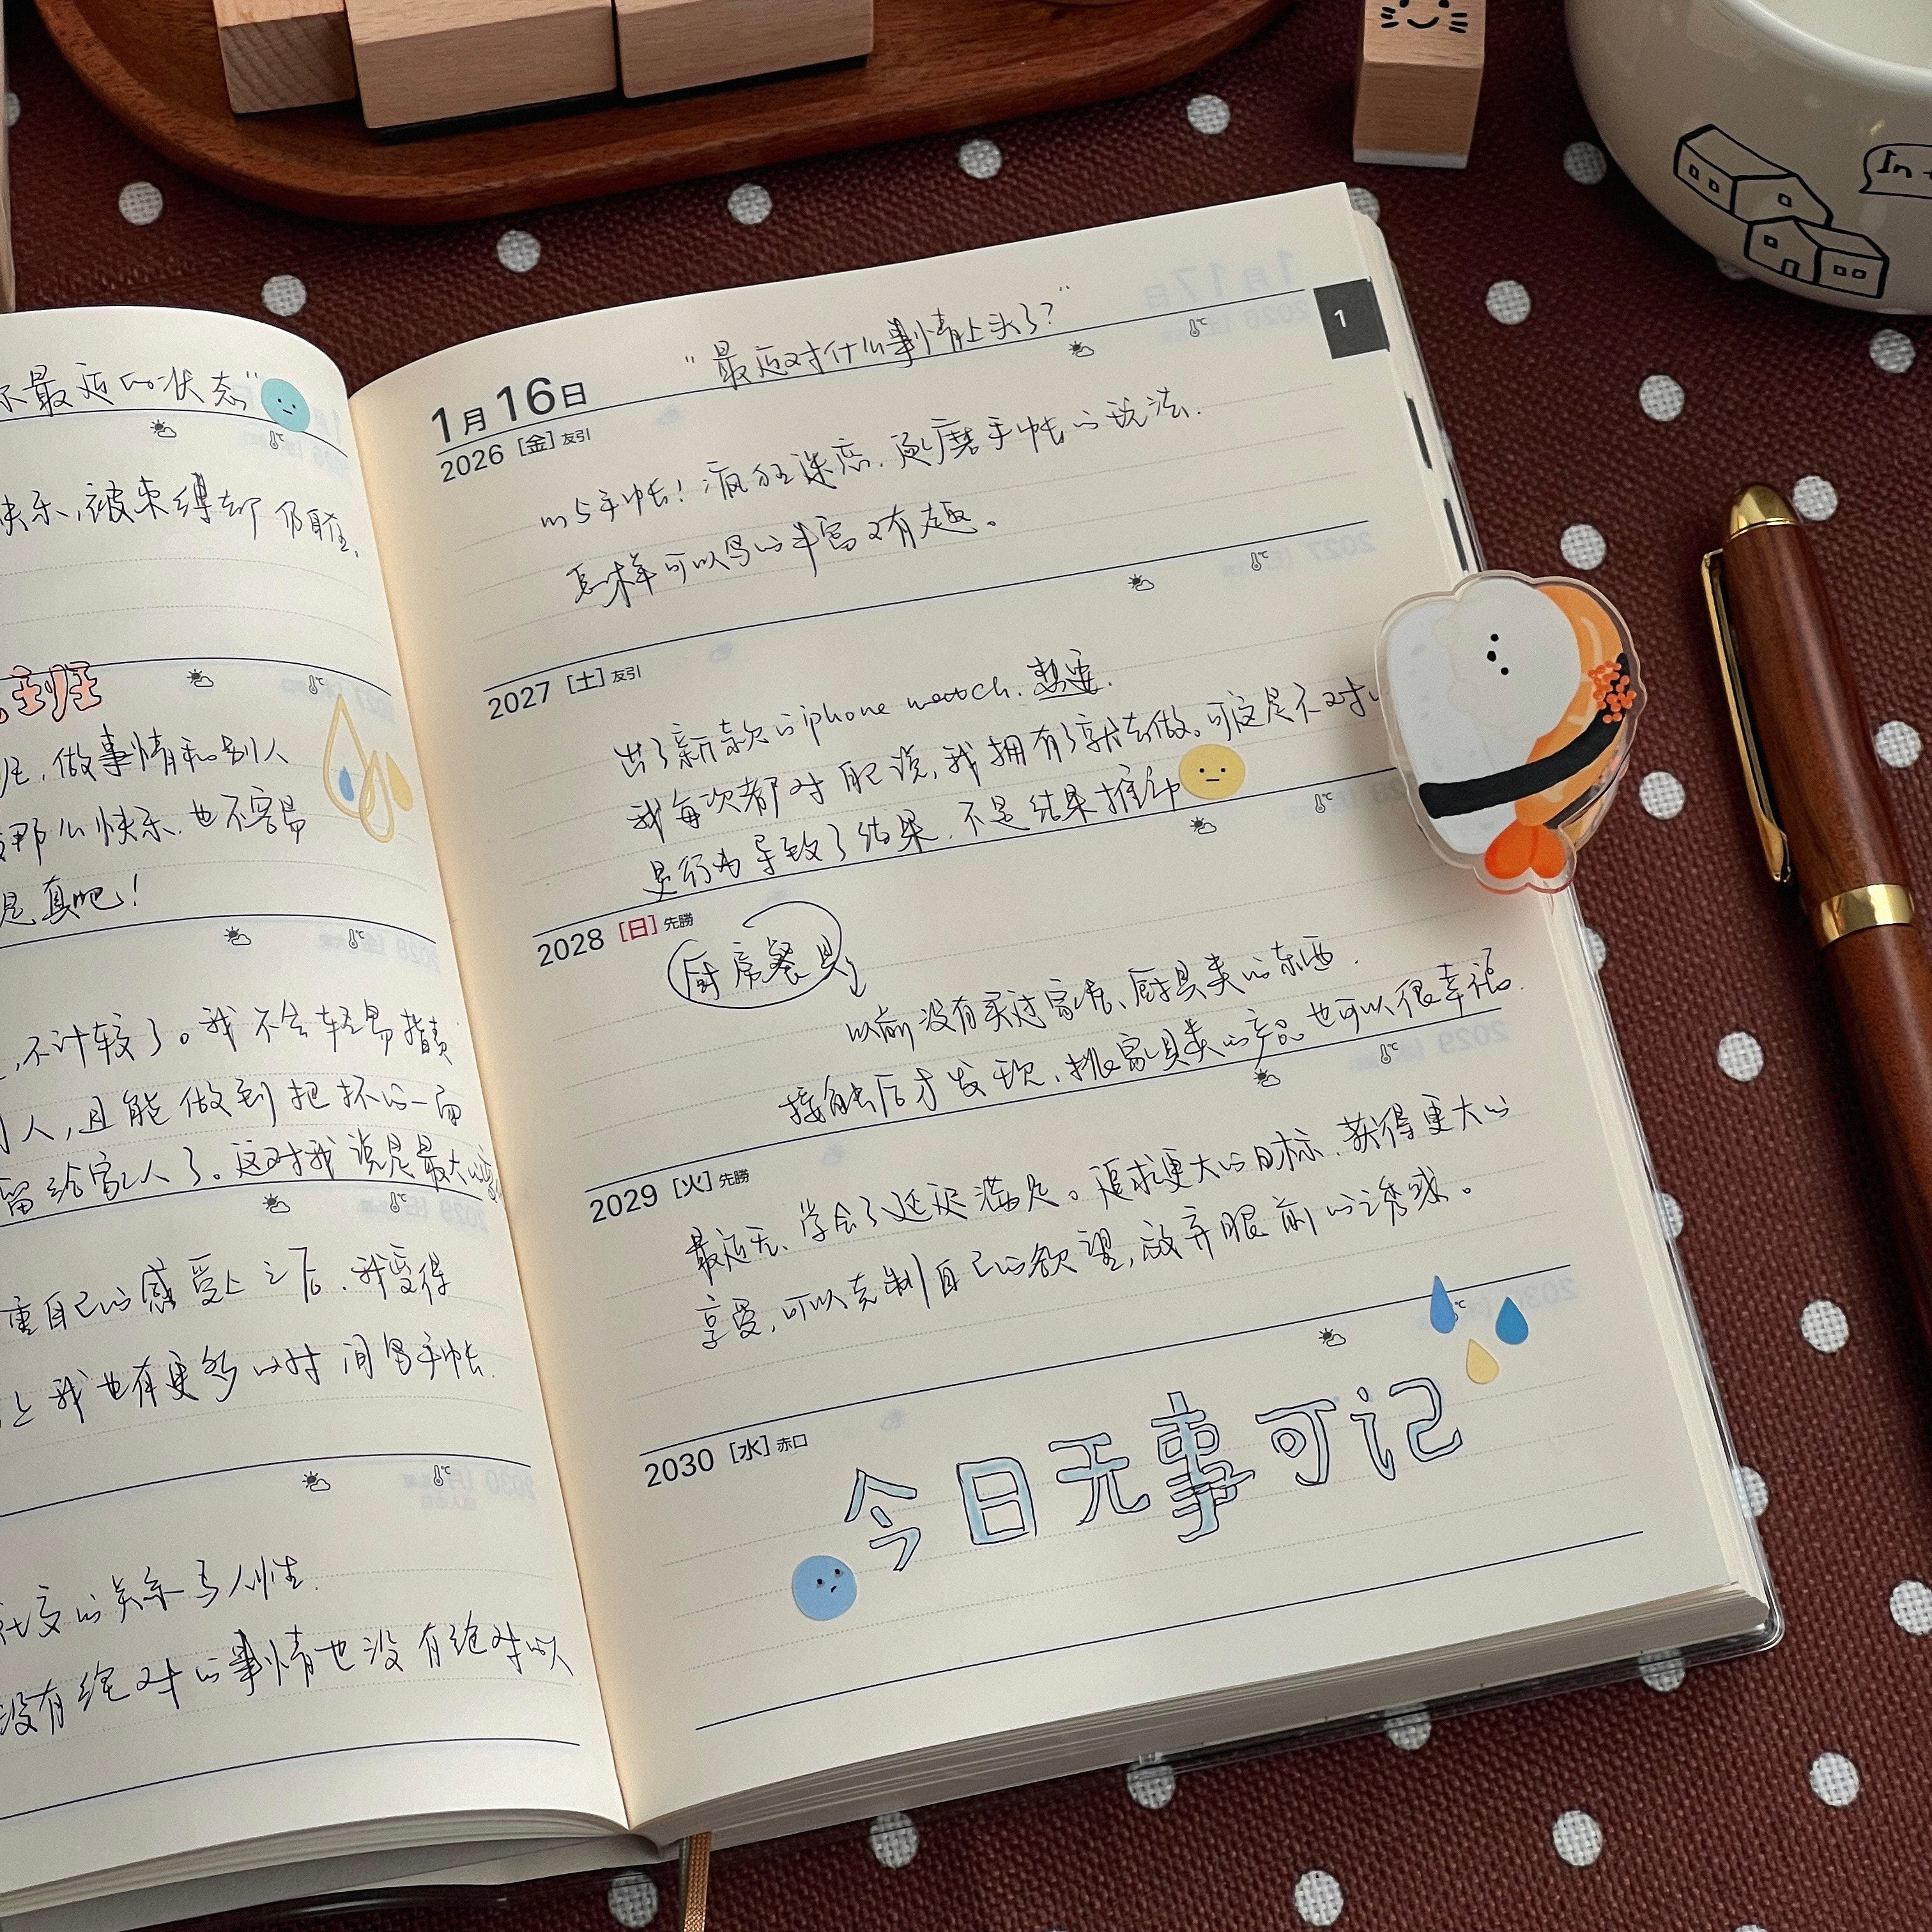 尔最近的状态"
快乐,被束缚却仍
上班
做事情和别人
那么快乐.也不容易
是真吧!
不计较了。我不会轻易指责
人,且能做到把坏的一面
留给家人了。这对我说是最大的
重自己的感受上之后.我变得
上我也有更多的时间写手帐.
社交的关系与人性.
没有绝对的事情也没有绝对的
1月16日
"最近对什么事情上头了?"
1
2026 [金] 友引
m5手帐!疯狂迷恋.琢磨手帐的玩法.
怎样可以写的丰富又有趣。
2027 [土] 友引
出了新款的iphone watch.想要.
我每次都对自己说,我拥有了就去做。可这是不对的
是行为导致了结果.不是结果推动
2028 [日] 先勝
厨房餐具
以前没有买过家居、厨具类的东西.
接触后才发现,挑家具类的产品也可以很幸福.
2029 [火] 先勝
最近无、学会了延迟满足。追求更大的目标.获得更大的
享受,可以克制自己的欲望,放弃眼前的诱惑。
2030 [水] 赤口
今日无事可记
In